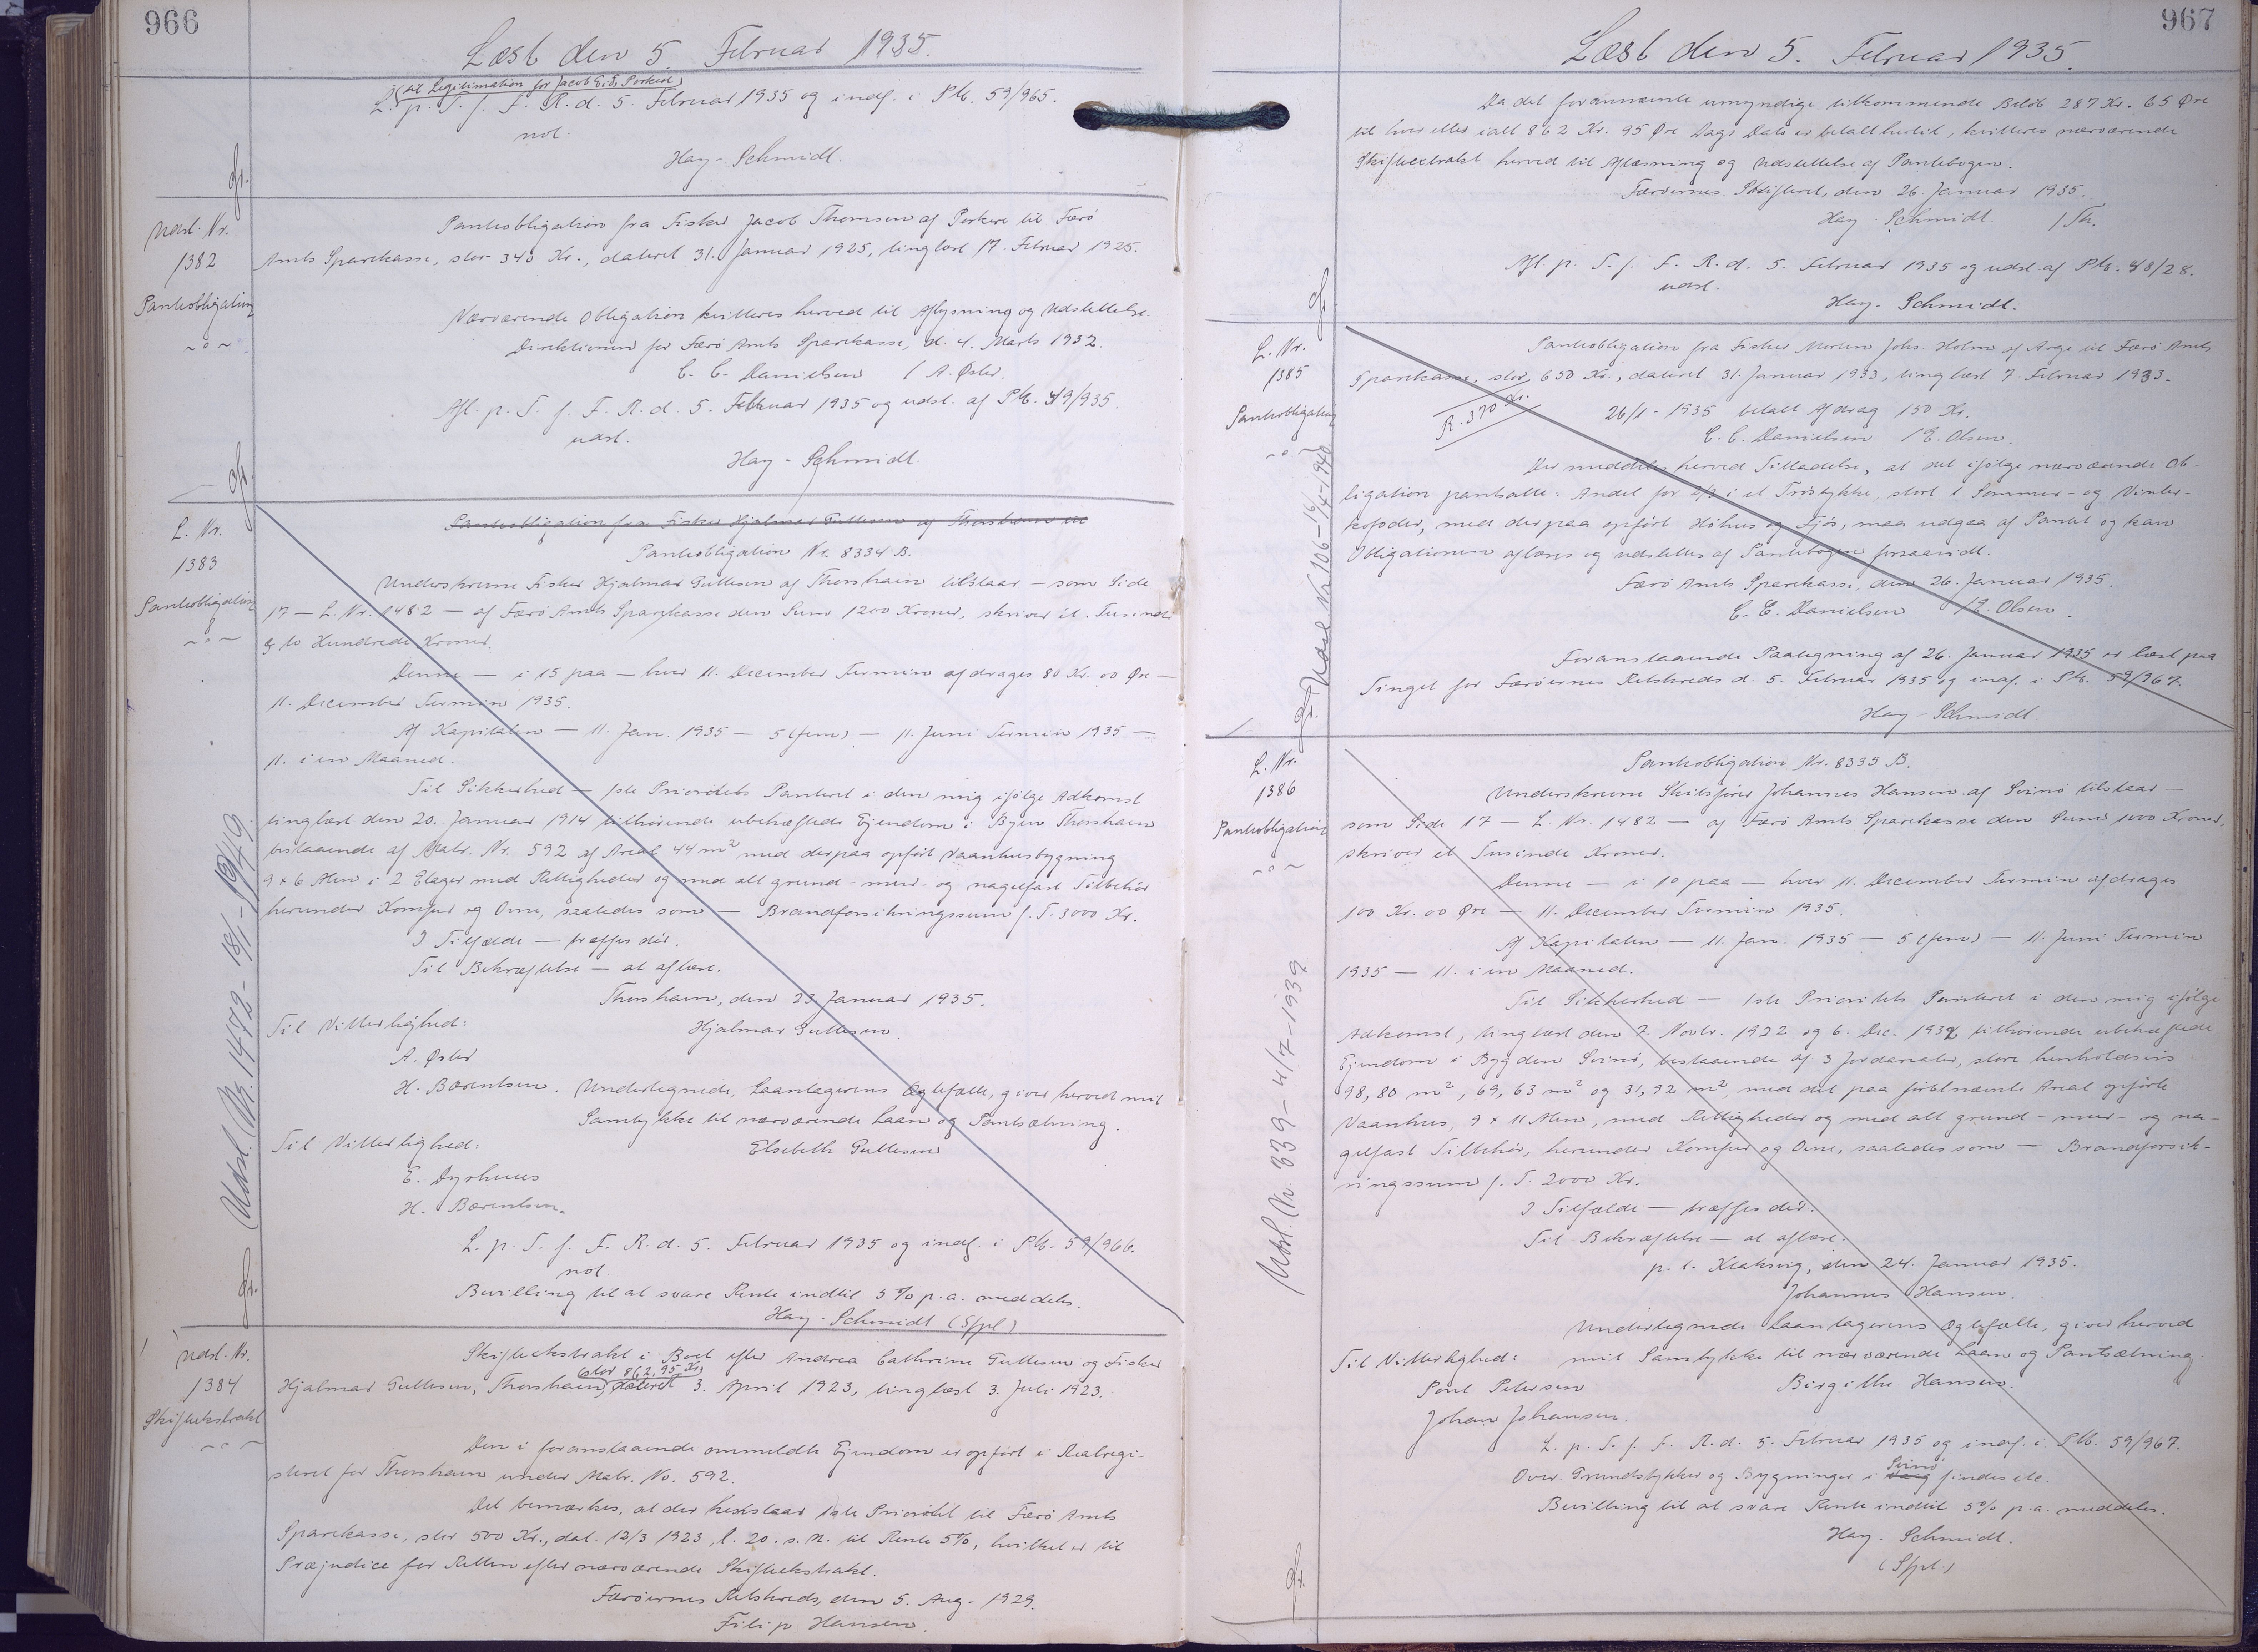 966
Læst den 5. Februar 1935.
at Legitimation for Jacob
L. p. T. f. F. R. d. 5. Februar 1935 og indf. i Ptb. 59/965.
not.
Hay-Schmidt.
Udsl. Nr.
1382
Pantobligation
~ " ~
Pantobligation fra Fisker Jacob Thomsen af Porkere til Færø
Amts Sparekasse, stor 340 Kr., dateret 31. Januar 1925, tinglæst 17. Februar 1925.
Nærværende Obligation kvitteres herved til Aflysning og Udslettelse.
Direktionen for Færø Amts Sparekasse, d. 4. Marts 1932.
C. C. Danielsen / A. Øster.
Afl. p. T. f. F. R. d. 5. Februar 1935 og udsl. af Ptb. 49/935.
udsl.
Hay-Schmidt.
L. Nr.
1383
Pantobligation
~ " ~
Udsl. Nr. 1472-
Pantobligation fra Fisker Hjalmar Gullesen af Thorshavn til
Pantobligation Nr. 8334 B.
Underskrevne Fisker Hjalmar Gullesen af Thorshavn tilstaar — som Side
17 — L. Nr. 1482 — af Færø Amts Sparekasse den Sum 1200 Kroner, skriver et Tusinde
& to Hundrede Kroner.
Denne — i 15 paa — hver 11. December Termin afdrages 80 Kr. 00 Øre —
11. December Termin 1935.
Af Kapitalen — 11. Jan. 1935 — 5 (fem) — 11. Juni Termin 1935 —
11. i en Maaned.
Til Sikkerhed — 1ste Prioritets Panteret i den mig ifølge Adkomst
tinglæst den 20. Januar 1914 tilhørende ubehæftede Ejendom i Byen Thorshavn
bestaaende af Matr. Nr. 592 af Areal 44 m² med derpaa opført Vaanhusbygning
9 × 6 Alen i 2 Etager med Rettigheder og med alt grund- mur- og nagelfast Tilbehør
herunder Komfur og Ovne, saaledes som — Brandforsikringssum f. T. 3000 Kr.
I Tilfælde — træffes dér.
Til Bekræftelse — at aflæse.
Thorshavn, den 23. Januar 1935.
Til Vitterlighed: Hjalmar Gullesen.
A. Øster
H. Bærentsen. Undertegnede, Laantagerens Ægtefælle, giver herved mit
Samtykke til nærværende Laan og Pantsætning.
Til Vitterlighed: Elsebeth Gullesen
E. Dyrhuus
H. Bærentsen.
L. p. T. f. F. R. d. 5. Februar 1935 og indf. i Ptb. 59/966.
not.
Bevilling til at svare Rente indtil 5% p.a. meddeles.
Hay-Schmidt (Sfpl)
Udsl. Nr.
1384
Skifteekstrakt
~ " ~
Skifteekstrakt i Boet efter Andrea Cathrine Gullesen og Fisker
(stor 862,95 Kr)
Hjalmar Gullesen, Thorshavn, dateret 3. April 1923, tinglæst 3. Juli 1923.
Den i foranstaaende ommeldte Ejendom er opført i Realregi-
steret for Thorshavn under Matr. No. 592.
Det bemærkes, at der hæfter 1ste Prioritet til Færø Amts
Sparekasse, stor 500 Kr., dat. 12/3 1923, l. 20. s. M. til Rente 5%, hvilket er til
Præjudice for Retten efter nærværende Skifteekstrakt.
Færøernes Retskreds, den 5. Aug. 1929.
Filip Hansen.
967
Læst den 5. Februar 1935.
Da det forannævnte umyndige tilkommende Beløb 287 Kr. 65 Øre
til hver eller ialt 862 Kr. 95 Øre Dags Dato er betalt hertil, kvitteres nærværende
Skifteextrakt herved til Aflæsning og Udslettelse af Pantebogen.
Færøernes Skifteret, den 26. Januar 1935.
Hay-Schmidt. /Th.
Afl. p. T. f. F. R. d. 5. Februar 1935 og udsl. af Ptb. 48/28.
udsl.
Hay-Schmidt.
L. Nr.
1385
Pantobligation
~ " ~
Udsl. Nr. 106-16/4-1940
Pantobligation fra Fisker Morten Johs. Holm af Arge til Færø Amts
Sparekasse, stor 650 Kr., dateret 31. Januar 1933, tinglæst 7. Februar 1933.
R. 370 Kr.
26/1-1935 betalt Afdrag 150 Kr.
C. C. Danielsen / E. Olsen.
Der meddeles herved Tilladelse, at det ifølge nærværende Ob-
ligation pantsatte: Andel for 2/3 i et Trøstykke, stort 1 Sommer- og Vinter-
kofoder, med derpaa opført Høhus og Fjós, maa udgaa af Pantet og kan
Obligationen aflæses og udslettes af Pantebogen forsaavidt.
Færø Amts Sparekasse, den 26. Januar 1935.
C. C. Danielsen / E. Olsen
Foranstaaende Paategning af 26. Januar 1935 er læst paa
Tinget for Færøernes Retskreds d. 5. Februar 1935 og indf. i Ptb. 59/967.
Hay-Schmidt.
L. Nr.
1386
Pantobligation
~ " ~
Udsl. Nr. 339-4/7-1939
Pantobligation Nr. 8335 B.
Underskrevne Skibsfører Johannes Hansen af Svinø tilstaar —
som Side 17 — L. Nr. 1482 — af Færø Amts Sparekasse den Sum 1000 Kroner,
skriver et Tusinde Kroner.
Denne — i 10 paa — hver 11. December Termin afdrages
100 Kr. 00 Øre — 11. December Termin 1935.
Af Kapitalen — 11. Jan. 1935 — 5 (fem) — 11. Juni Termin
1935 — 11. i en Maaned.
Til Sikkerhed — 1ste Prioritets Panteret i den mig ifølge
Adkomst, tinglæst den 7. Novbr. 1922 og 6. Dec. 1932 tilhørende ubehæftede
Ejendom i Bygden Svinø, bestaaende af 3 Jordarealer, store henholdsvis
98,80 m², 69,63 m² og 31,92 m², med det paa førstnævnte Areal opførte
Vaanhus, 9 × 11 Alen, med Rettigheder og med alt grund- mur- og na-
gelfast Tilbehør, herunder Komfur og Ovne, saaledes som — Brandforsik-
ringssum f. T. 2000 Kr.
I Tilfælde — træffes dér.
Til Bekræftelse — at aflæse.
p. t. Klaksvig, den 24. Januar 1935.
Johannes Hansen.
Undertegnede Laantagerens Ægtefælle, giver herved
Til Vitterlighed: mit Samtykke til nærværende Laan og Pantsætning.
Poul Petersen Birgithe Hansen.
Johan Johansen.
L. p. T. f. F. R. d. 5. Februar 1935 og indf. i Ptb. 59/967.
Svinø
Over Grundstykker og Bygninger i Vaag findes etc.
Bevilling til at svare Rente indtil 5% p.a. meddeles.
Hay-Schmidt.
(Sfpl.)